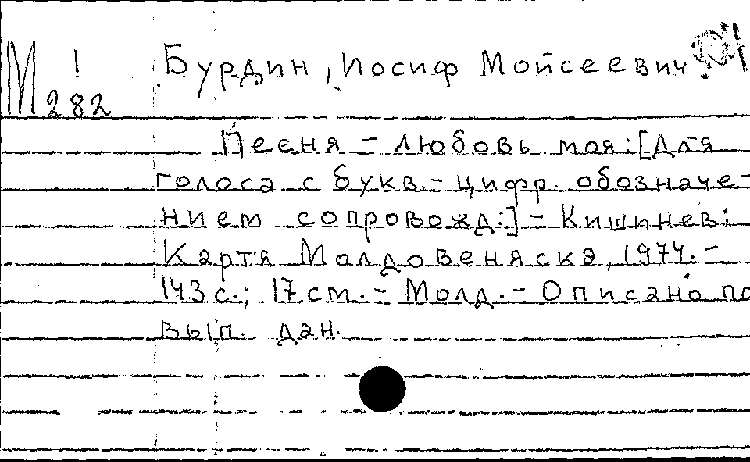 М 1 Бурдин, Иосиф Мойсеевич
282
Песня - любовь моя: [Для
голоса с букв.-цифр. обозначе-
нием сопровожд.] - Кишинев:
Картя Молдовеняскэ, 1974. -
143 с.; 17 см. - Молд. - Описано по
вып. дан.